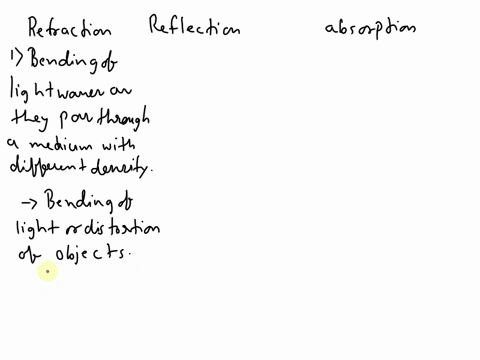 Refraction Reflection absorption
1) Bending of
light waves as
they pass through
a medium with
different density.
→ Bending of
light or distortion
of objects.